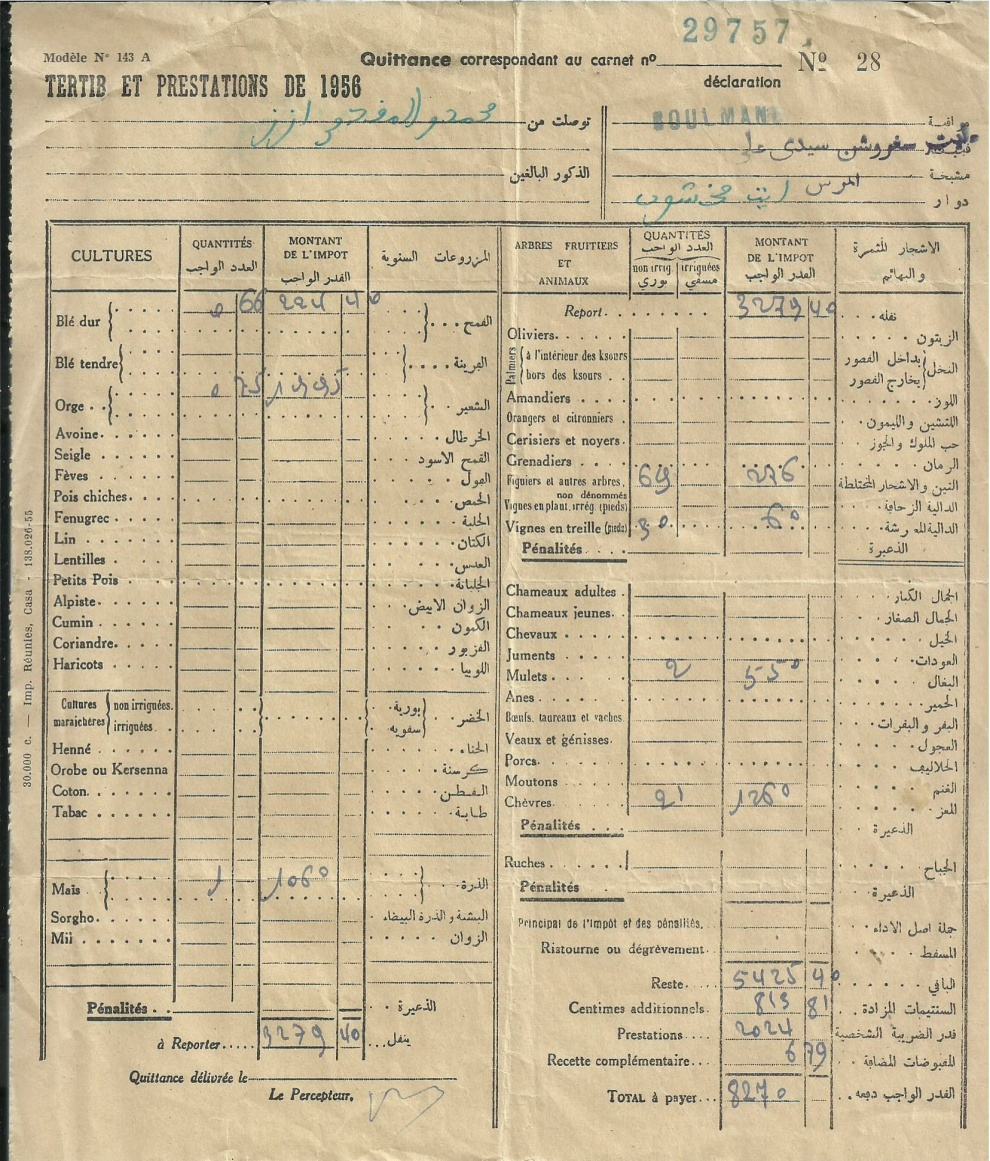 29757
Modèle N° 143 A
Quittance correspondant au carnet n° N° 28
TERTIB ET PRESTATIONS DE 1956
déclaration
توصلت من
BOULMANE
سغروشن سيدي علي
الذكور البالغين
مشيخة المرس
دوار ايت
CULTURES QUANTITÉS العدد الواجب MONTANT DE L'IMPOT القدر الواجب المزروعات السنوية
Blé dur 0 66 224 40 القمح
Blé tendre الفرينة
Orge 0 75 1995 الشعير
Avoine الخرطال
Seigle القمح الاسود
Fèves الفول
Pois chiches الحمص
Fenugrec الحلبة
Lin الكتان
Lentilles العدس
Petits Pois الجلبانة
Alpiste الزوان الابيض
Cumin الكمون
Coriandre القزبور
Haricots اللوبيا
Cultures maraichères non irriguées بورية الخضر
irriguées سقوية
Henné الحناء
Orobe ou Kersenna كرسنة
Coton القطن
Tabac طابة
Maïs 1 1060 الذرة
Sorgho البشنة والذرة البيضاء
Mil الزوان
Pénalités الذعيرة
à Reporter 3279 40 ينقل
Quittance délivrée le
Le Percepteur,
ARBRES FRUITIERS ET ANIMAUX QUANTITÉS العدد الواجب non irrig. بوري irriguées مسقي MONTANT DE L'IMPOT القدر الواجب الاشجار المثمرة والبهائم
Report 3279 40 نقله
Oliviers الزيتون
Palmiers à l'intérieur des ksours النخل بداخل القصور
hors des ksours بخارج القصور
Amandiers اللوز
Orangers et citronniers اللتشين والليمون
Cerisiers et noyers حب الملوك والجوز
Grenadiers الرمان
Figuiers et autres arbres, non dénommés 69 276 التين والاشجار المختلطة
Vignes en plant. irrég. (pieds) الدالية الزحافة
Vignes en treille (pieds) 30 60 الدالية المعرشة
Pénalités الذعيرة
Chameaux adultes الجمال الكبار
Chameaux jeunes الجمال الصغار
Chevaux الخيل
Juments العودات
Mulets 2 550 البغال
Anes الحمير
Bœufs, taureaux et vaches البقر والبقرات
Veaux et génisses العجول
Porcs الحلاليف
Moutons الغنم
Chèvres 21 1260 المعز
Pénalités الذعيرة
Ruches الجباح
Pénalités الذعيرة
Principal de l'impôt et des pénalités جملة اصل الاداء
Ristourne ou dégrèvement المسقط
Reste 5425 40 الباقي
Centimes additionnels 813 81 السنتيمات المزادة
Prestations 2024 قدر الضريبة الشخصية
Recette complémentaire 6 79 المقبوضات المضافة
TOTAL à payer 8270 القدر الواجب دفعه
30.000 c. — Imp. Réunies, Casa - 138.026-55